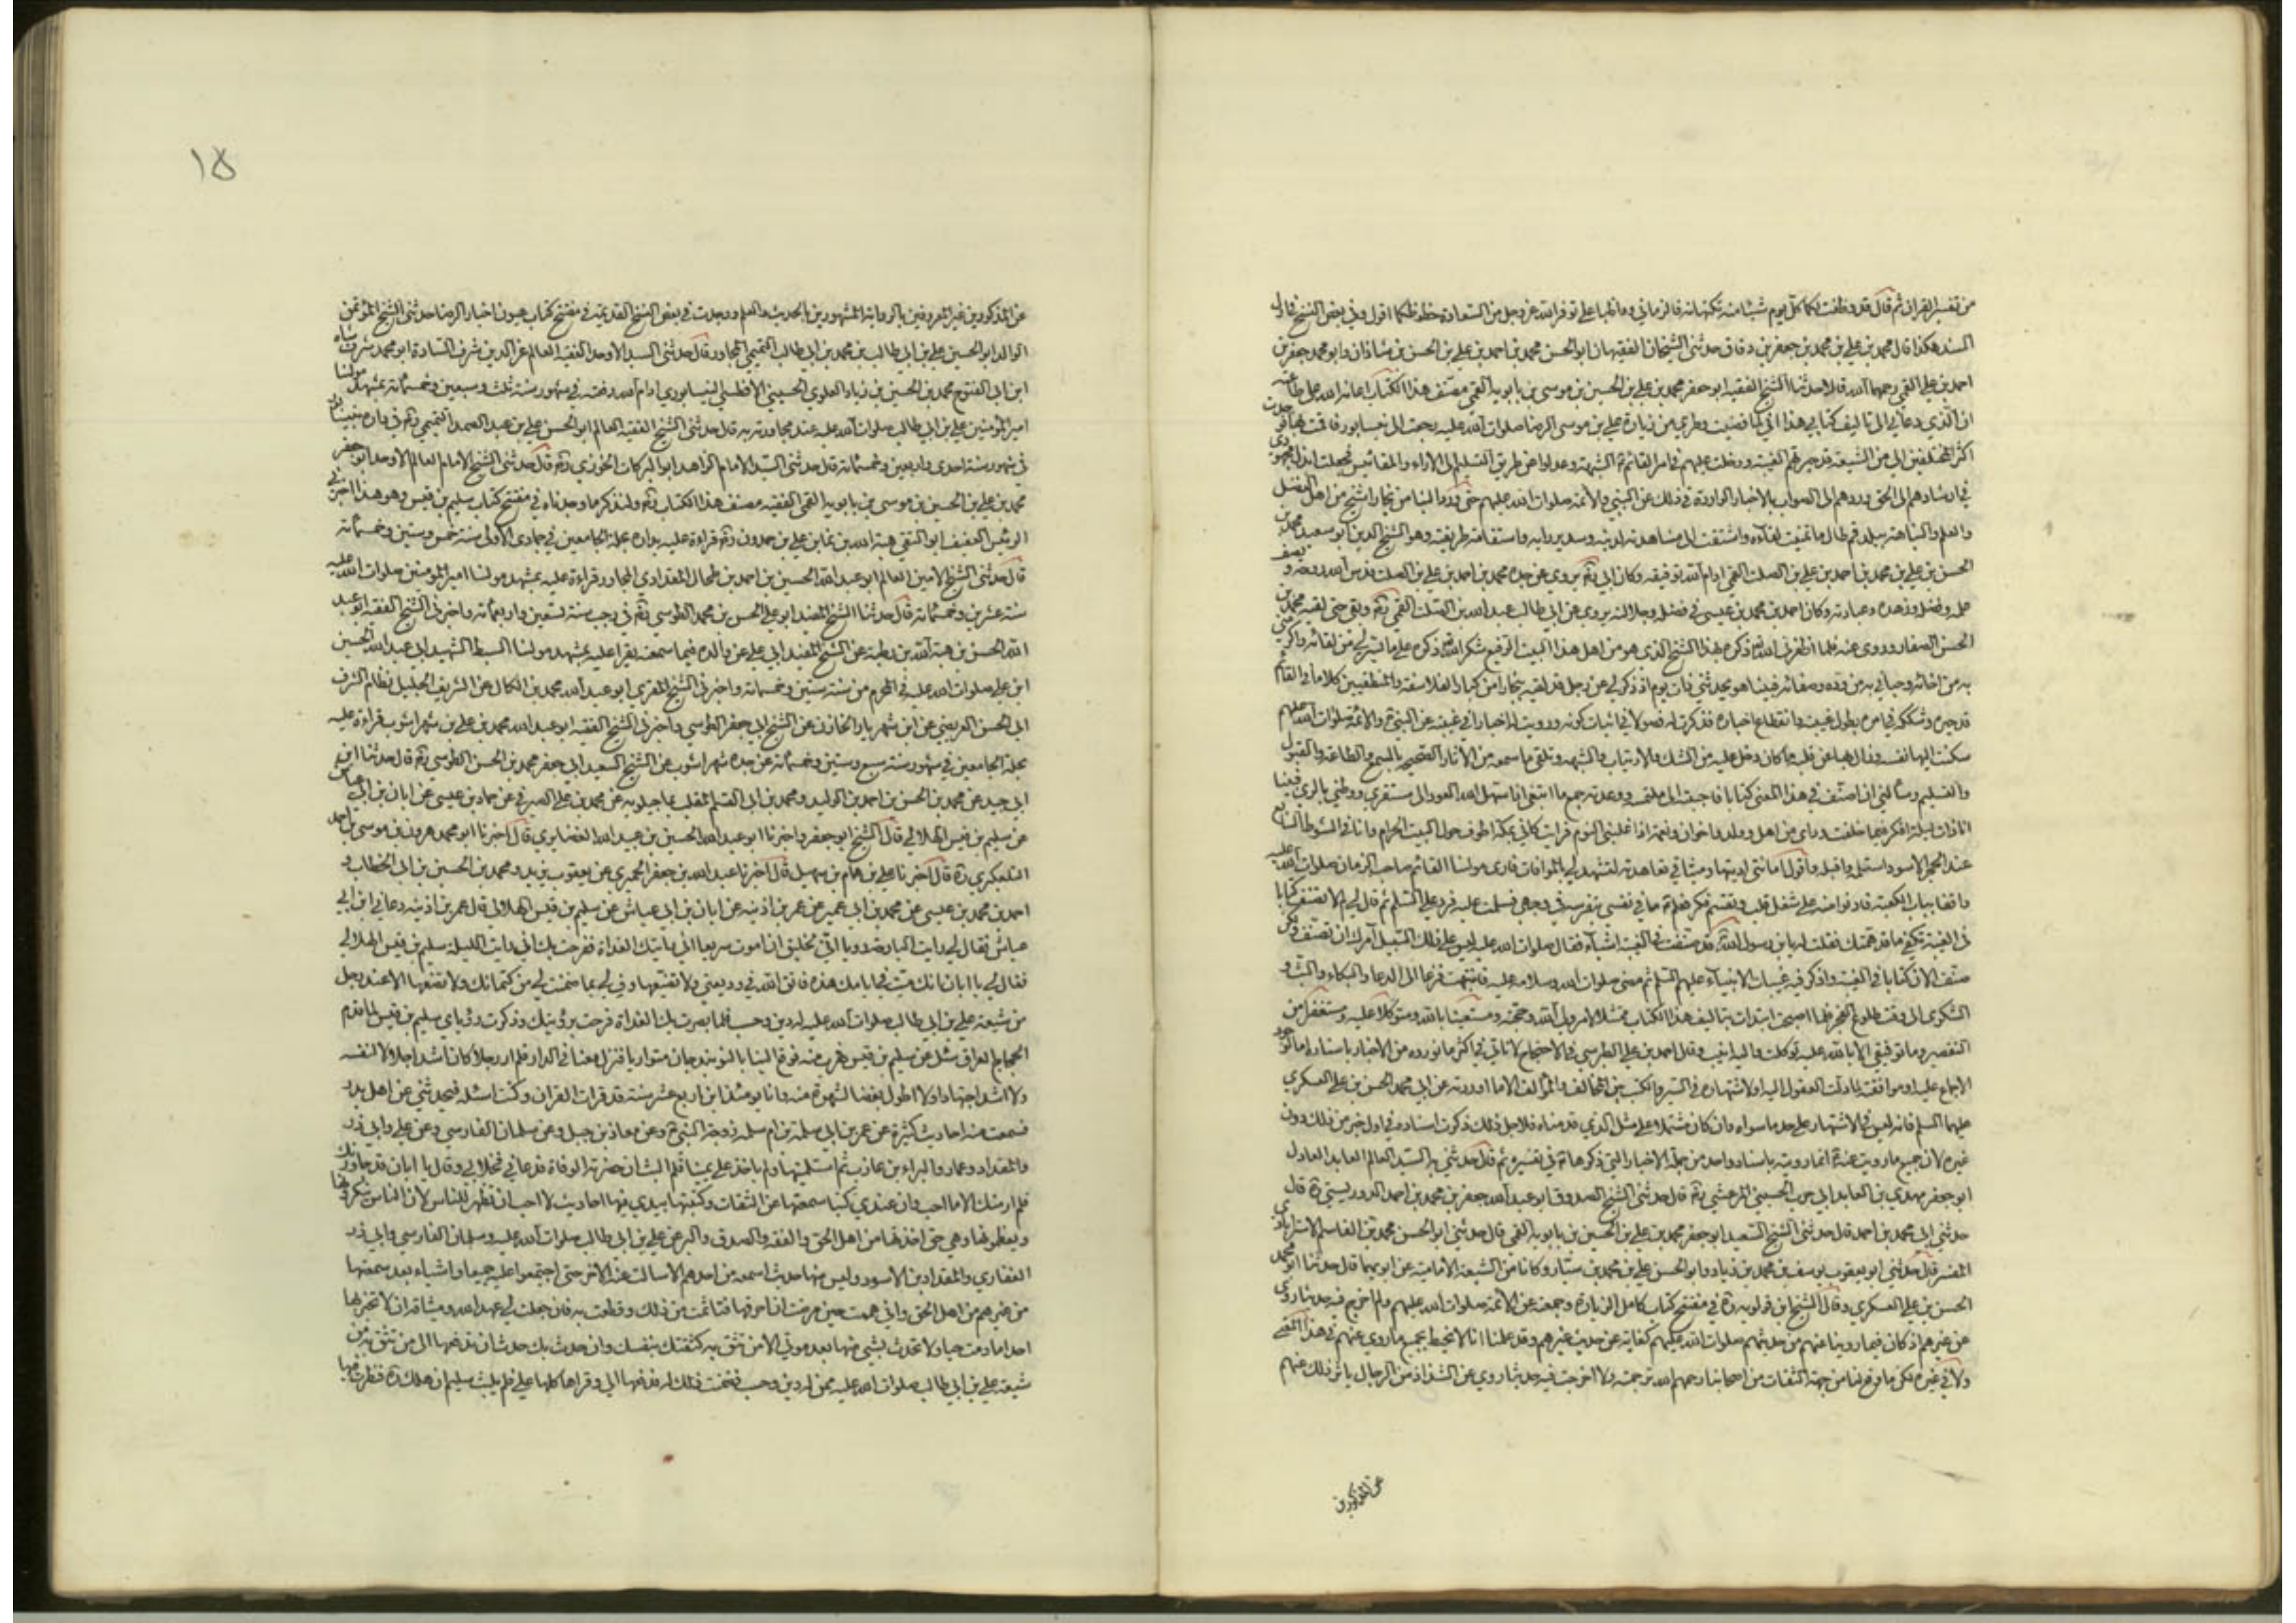 من تفسير القران ثم قال قد وظفت لكما كل يوم شيئا منه تكتبانه فالزماني وواظبا علي توفر الله عز وجل من السعادة حظوظكما اقول وفي بعض النسخ في اول
السند هكذا قال محمد بن علي بن محمد بن جعفر بن دقاق حدثني الشيخان الفقيهان ابو الحسن محمد بن احمد بن علي بن الحسن بن شاذان وابو محمد جعفر بن
احمد بن علي القمي رحمهما الله قالا حدثنا الشيخ الفقيه ابو جعفر محمد بن علي بن الحسين بن موسى بن بابويه القمي مصنف هذا الكتاب اعانه الله على طاعته
ان الذي دعاني الى تاليف كتابي هذا اني لما قضيت وطري من زيارة علي بن موسى الرضا صلوات الله عليه رجعت الى نيسابور فاقمت بها فوجدت
اكثر المختلفين الي من الشيعة قد حيرتهم الغيبة ودخلت عليهم في امر القائم الشبهة وعدلوا عن طريق التسليم الى الاراء والمقائيس فجعلت ابذل مجهودي
في ارشادهم الى الحق وردهم الى الصواب بالاخبار الواردة في ذلك عن النبي والائمة صلوات الله عليهم حتى ورد الينا من بخارا شيخ من اهل الفضل
والعلم والنباهة ببلد قم طال ما تمنيت لقاءه واشتقت الى مشاهدته لدينه وسديد رايه واستقامة طريقته وهو الشيخ الدين ابو سعيد محمد بن
الحسن بن علي بن محمد بن احمد بن علي بن الصلت القمي ادام الله توفيقه وكان ابي يروي عن جده محمد بن احمد بن علي بن الصلت قدس الله روحه ويصف
علمه وفضله وزهده وعبادته وكان احمد بن محمد بن عيسى في فضله وجلالته يروي عن ابي طالب عبد الله بن الصلت القمي وبقي حتى لقيه محمد بن
الحسن الصفار وروى عنه فلما اظفرني الله ذكره بهذا الشيخ الذي هو من اهل هذا البيت الرفيع شكرت الله ذكره على ما يسر لي من لقائه واكرمني
به من اخائه وحباني به من وده وصفائه فبينا هو يحدثني ذات يوم اذ ذكر لي عن رجل قد لقيه ببخارا من كبار الفلاسفة والمنطقيين كلاما في القائم
قد حيره وشككه في امره بطول غيبته وانقطاع اخباره فذكرت له فصولا في اثبات كونه ورويت له اخبارا في غيبته عن النبي والائمة صلوات الله عليهم
سكنت اليها نفسه وزال بها عن قلبه ما كان دخل عليه من الشك والارتياب والشبهة وتلقى ما سمعه من الاثار الصحيحة بالسمع والطاعة والقبول
والتسليم وسألني ان اصنف في هذا المعنى كتابا فاجبته الى ملتمسه ووعدته جمع ما ابتغى اذا سهل الله العود الى مستقري ووطني بالري فبينا
انا ذات ليلة افكر فيما خلفت ورائي من اهل وولد واخوان ونعمة اذا غلبني النوم فرايت كاني بمكة اطوف حول البيت الحرام وانا في الشوط السابع
عند الحجر الاسود استلمه واقبله واقول امانتي اديتها وميثاقي تعاهدته لتشهد لي بالموافاة فارى مولنا القائم صاحب الزمان صلوات الله عليه
واقفا بباب الكعبة فادنو منه على شغل قلب وتقسم فكر فعلم ما في نفسي بتفرسه في وجهي فسلمت عليه فرد علي السلم ثم قال لي لم لا تصنف كتابا
في الغيبة تكفي ما قد همتك فقلت له يا بن رسول الله قد صنفت في الغيبة اشياء فقال صلوات الله عليه ليس على ذلك السبيل آمرك ان تصنف ولكن
صنف الان كتابا في الغيبة واذكر فيه غيبات الانبياء عليهم السلم ثم مضى صلوات الله وسلامه عليه فانتبهت فزعا الى الدعا والبكاء والبث و
الشكوى الى وقت طلوع الفجر فلما اصبحت ابتدات بتاليف هذا الكتاب ممتثلا لامر ولي الله وحجته ومستعينا بالله ومتوكلا عليه ومستغفرا من
التقصير وما توفيقي الا بالله عليه توكلت واليه انيب وقال احمد بن علي الطبرسي في الاحتجاج لا ناتي في اكثر ما نورده من الاخبار باسناده اما لوجود
الاجماع عليه او موافقته لما دلت العقول اليه او لاشتهاره في السير والكتب بين المخالف والموالف الا ما اوردته عن ابي محمد الحسن بن علي العسكري
عليهما السلم فانه ليس في الاشتهار على حد ما سواه وان كان مشتملا على مثل الذي قدمناه فلاجل ذلك ذكرت اسناده في اول خبر من ذلك دون
غيره لان جميع ما رويت عنه انما رويته باسناد واحد من جملة الاخبار التي ذكرها في تفسيره ثم قال حدثني به السيد العالم العابد العادل
ابو جعفر مهدي بن العابد ابي حرب الحسيني المرعشي قال حدثني الشيخ الصدوق ابو عبد الله جعفر بن محمد بن احمد الدوريستي قال
حدثني ابي محمد بن احمد قال حدثني الشيخ السعيد ابو جعفر محمد بن علي بن الحسين بن بابويه القمي قال حدثني ابو الحسن محمد بن القاسم الاسترابادي
المفسر قال حدثني ابو يعقوب يوسف بن محمد بن زياد وابو الحسن علي بن محمد بن سيار وكانا من الشيعة الامامية عن ابويهما قال حدثنا ابو محمد
الحسن بن علي العسكري وقال الشيخ ابن قولويه في مفتتح كتاب كامل الزيارة وجمعته عن الائمة صلوات الله عليهم ولم اخرج فيه حديثا روي
عن غيرهم اذ كان فيما روينا عنهم من حديثهم صلوات الله عليهم كفاية عن حديث غيرهم وقد علمنا انا لا نحيط بجميع ما روي عنهم في هذا المعنى
ولا في غيره لكن ما وقع لنا من جهة الثقات من اصحابنا رحمهم الله برحمته ولا اخرجت فيه حديثا روي عن الشذاذ من الرجال ياثر ذلك عنهم
عن المذكورين
١٥
عن المذكورين غير المعروفين بالرواية المشهورين بالحديث والعلم ووجدت في بعض النسخ القديمة في مفتتح كتاب عيون اخبار الرضا حدثني الشيخ المؤتمن
الوالد ابو الحسين علي بن ابي طالب بن محمد بن ابي طالب التميمي المجاور قال حدثني السيد الاوحد الفقيه العالم عز الدين شرف السادة ابو محمد شرفشاه
ابن ابي الفتوح محمد بن الحسين بن زياد العلوي الحسيني الافطسي النيسابوري ادام الله رفعته في شهور سنة ثلث وسبعين وخمسمائة بمشهد مولنا
امير المؤمنين علي بن ابي طالب صلوات الله عليه عند مجاورته به قال حدثني الشيخ الفقيه العالم ابو الحسن علي بن عبد الصمد التميمي في داره بنيسابور
في شهور سنة احدى واربعين وخمسمائة قال حدثني السيد الامام الزاهد ابو البركات الخوزي قال حدثني الشيخ الامام العالم الاوحد ابو جعفر
محمد بن علي بن الحسين بن موسى بن بابويه القمي الفقيه مصنف هذا الكتاب ولنذكر ما وجدناه في مفتتح كتاب سليم بن قيس وهو هذا اخبرني
الرئيس العفيف ابو التقي هبة الله بن نما بن علي بن حمدون قراءة عليه بداره بحلة الجامعين في جمادى الاولى سنة خمس وستين وخمسمائة
قال حدثني الشيخ الامين العالم ابو عبد الله الحسين بن احمد بن طحال المقدادي المجاور قراءة عليه بمشهد مولنا امير المؤمنين صلوات الله عليه
سنة عشرين وخمسمائة قال حدثنا الشيخ المفيد ابو علي الحسن بن محمد الطوسي في رجب سنة تسعين واربعمائة واخبرني الشيخ الفقيه ابو عبد
الله الحسن بن هبة الله بن رطبة عن الشيخ المفيد ابي علي عن والده فيما سمعته يقرا عليه بمشهد مولنا السبط الشهيد ابي عبد الله الحسين
ابن علي صلوات الله عليه في المحرم من سنة ستين وخمسمائة واخبرني الشيخ المقري ابو عبد الله محمد بن الكال عن الشريف الجليل نظام الشرف
ابي الحسن العريضي عن ابن شهريار الخازن عن الشيخ ابي جعفر الطوسي واخبرني الشيخ الفقيه ابو عبد الله محمد بن علي بن شهراشوب قراءة عليه
بحلة الجامعين في شهور سنة سبع وستين وخمسمائة عن جده شهراشوب عن الشيخ السعيد ابي جعفر محمد بن الحسن الطوسي قال حدثنا ابن
ابي جيد عن محمد بن الحسن بن احمد بن الوليد ومحمد بن ابي القسم الملقب بماجيلويه عن محمد بن علي الصيرفي عن حماد بن عيسى عن ابان بن ابي عياش
عن سليم بن قيس الهلالي قال الشيخ ابو جعفر واخبرنا ابو عبد الله الحسين بن عبيد الله الغضايري قال اخبرنا ابو محمد هرون بن موسى بن احمد
التلعكبري قال اخبرنا علي بن همام بن سهيل قال اخبرنا عبد الله بن جعفر الحميري عن يعقوب بن يزيد ومحمد بن الحسين بن ابي الخطاب و
احمد بن محمد بن عيسى عن محمد بن ابي عمير عن عمر بن اذينة عن ابان بن ابي عياش عن سليم بن قيس الهلالي قال عمر بن اذينة دعاني ابن ابي
عياش فقال لي رايت البارحة رويا اني لخليق ان اموت سريعا اني رايتك الغداة ففرحت بك اني رايت الليلة سليم بن قيس الهلالي
فقال لي يا ابان انك ميت في ايامك هذه فاتق الله في وديعتي ولا تضيعها وف لي بما ضمنت لي من كتمانك ولا تضعها الا عند رجل
من شيعة علي بن ابي طالب صلوات الله عليه له دين وحسب فلما بصرت بك الغداة فرحت برؤيتك وذكرت رؤياي سليم بن قيس لما قدم
الحجاج العراق سئل عن سليم بن قيس فهرب منه فوقع الينا بالنوبندجان متواريا فنزل معنا في الدار فلم ار رجلا كان اشد اجلالا لنفسه
ولا اشد اجتهادا ولا اطول بغضا للشهوة منه وانا يومئذ ابن اربع عشر سنة قد قرات القران وكنت اسئله فيحدثني عن اهل بدر
فسمعت منه احاديث كثيرة عن عمر بن ابي سلمة بن ام سلمة زوجة النبي وعن معاذ بن جبل وعن سلمان الفارسي وعن علي وابي ذر
والمقداد وعمار والبراء بن عازب ثم استكتمنيها ولم ياخذ علي يمينا فلم البث ان حضرته الوفاة فدعاني فخلا بي وقال يا ابان قد جاورتك
فلم ار منك الا ما احب وان عندي كتبا سمعتها عن الثقات وكتبتها بيدي فيها احاديث لا احب ان تظهر للناس لان الناس ينكرونها
ويعظمونها وهي حق اخذتها من اهل الحق والفقه والصدق والبر عن علي بن ابي طالب صلوات الله عليه وسلمان الفارسي وابي ذر
الغفاري والمقداد بن الاسود وليس منها حديث اسمعه من احدهم الا سالت عنه الاخر حتى اجتمعوا عليه جميعا واشياء بعد سمعتها
من غيرهم من اهل الحق واني هممت حين مرضت ان احرقها فتاثمت من ذلك وقطعت به فان جعلت لي عهد الله وميثاقه ان لا تخبر بها
احدا ما دمت حيا ولا تحدث بشئ منها بعد موتي الا من تثق به كثقتك بنفسك وان حدث بك حدث ان تدفعها الى من تثق به من
شيعة علي بن ابي طالب صلوات الله عليه ممن له دين وحسب فضمنت ذلك له فدفعها الي وقراها كلها علي فلم يلبث سليم ان هلك فنظرت فيها